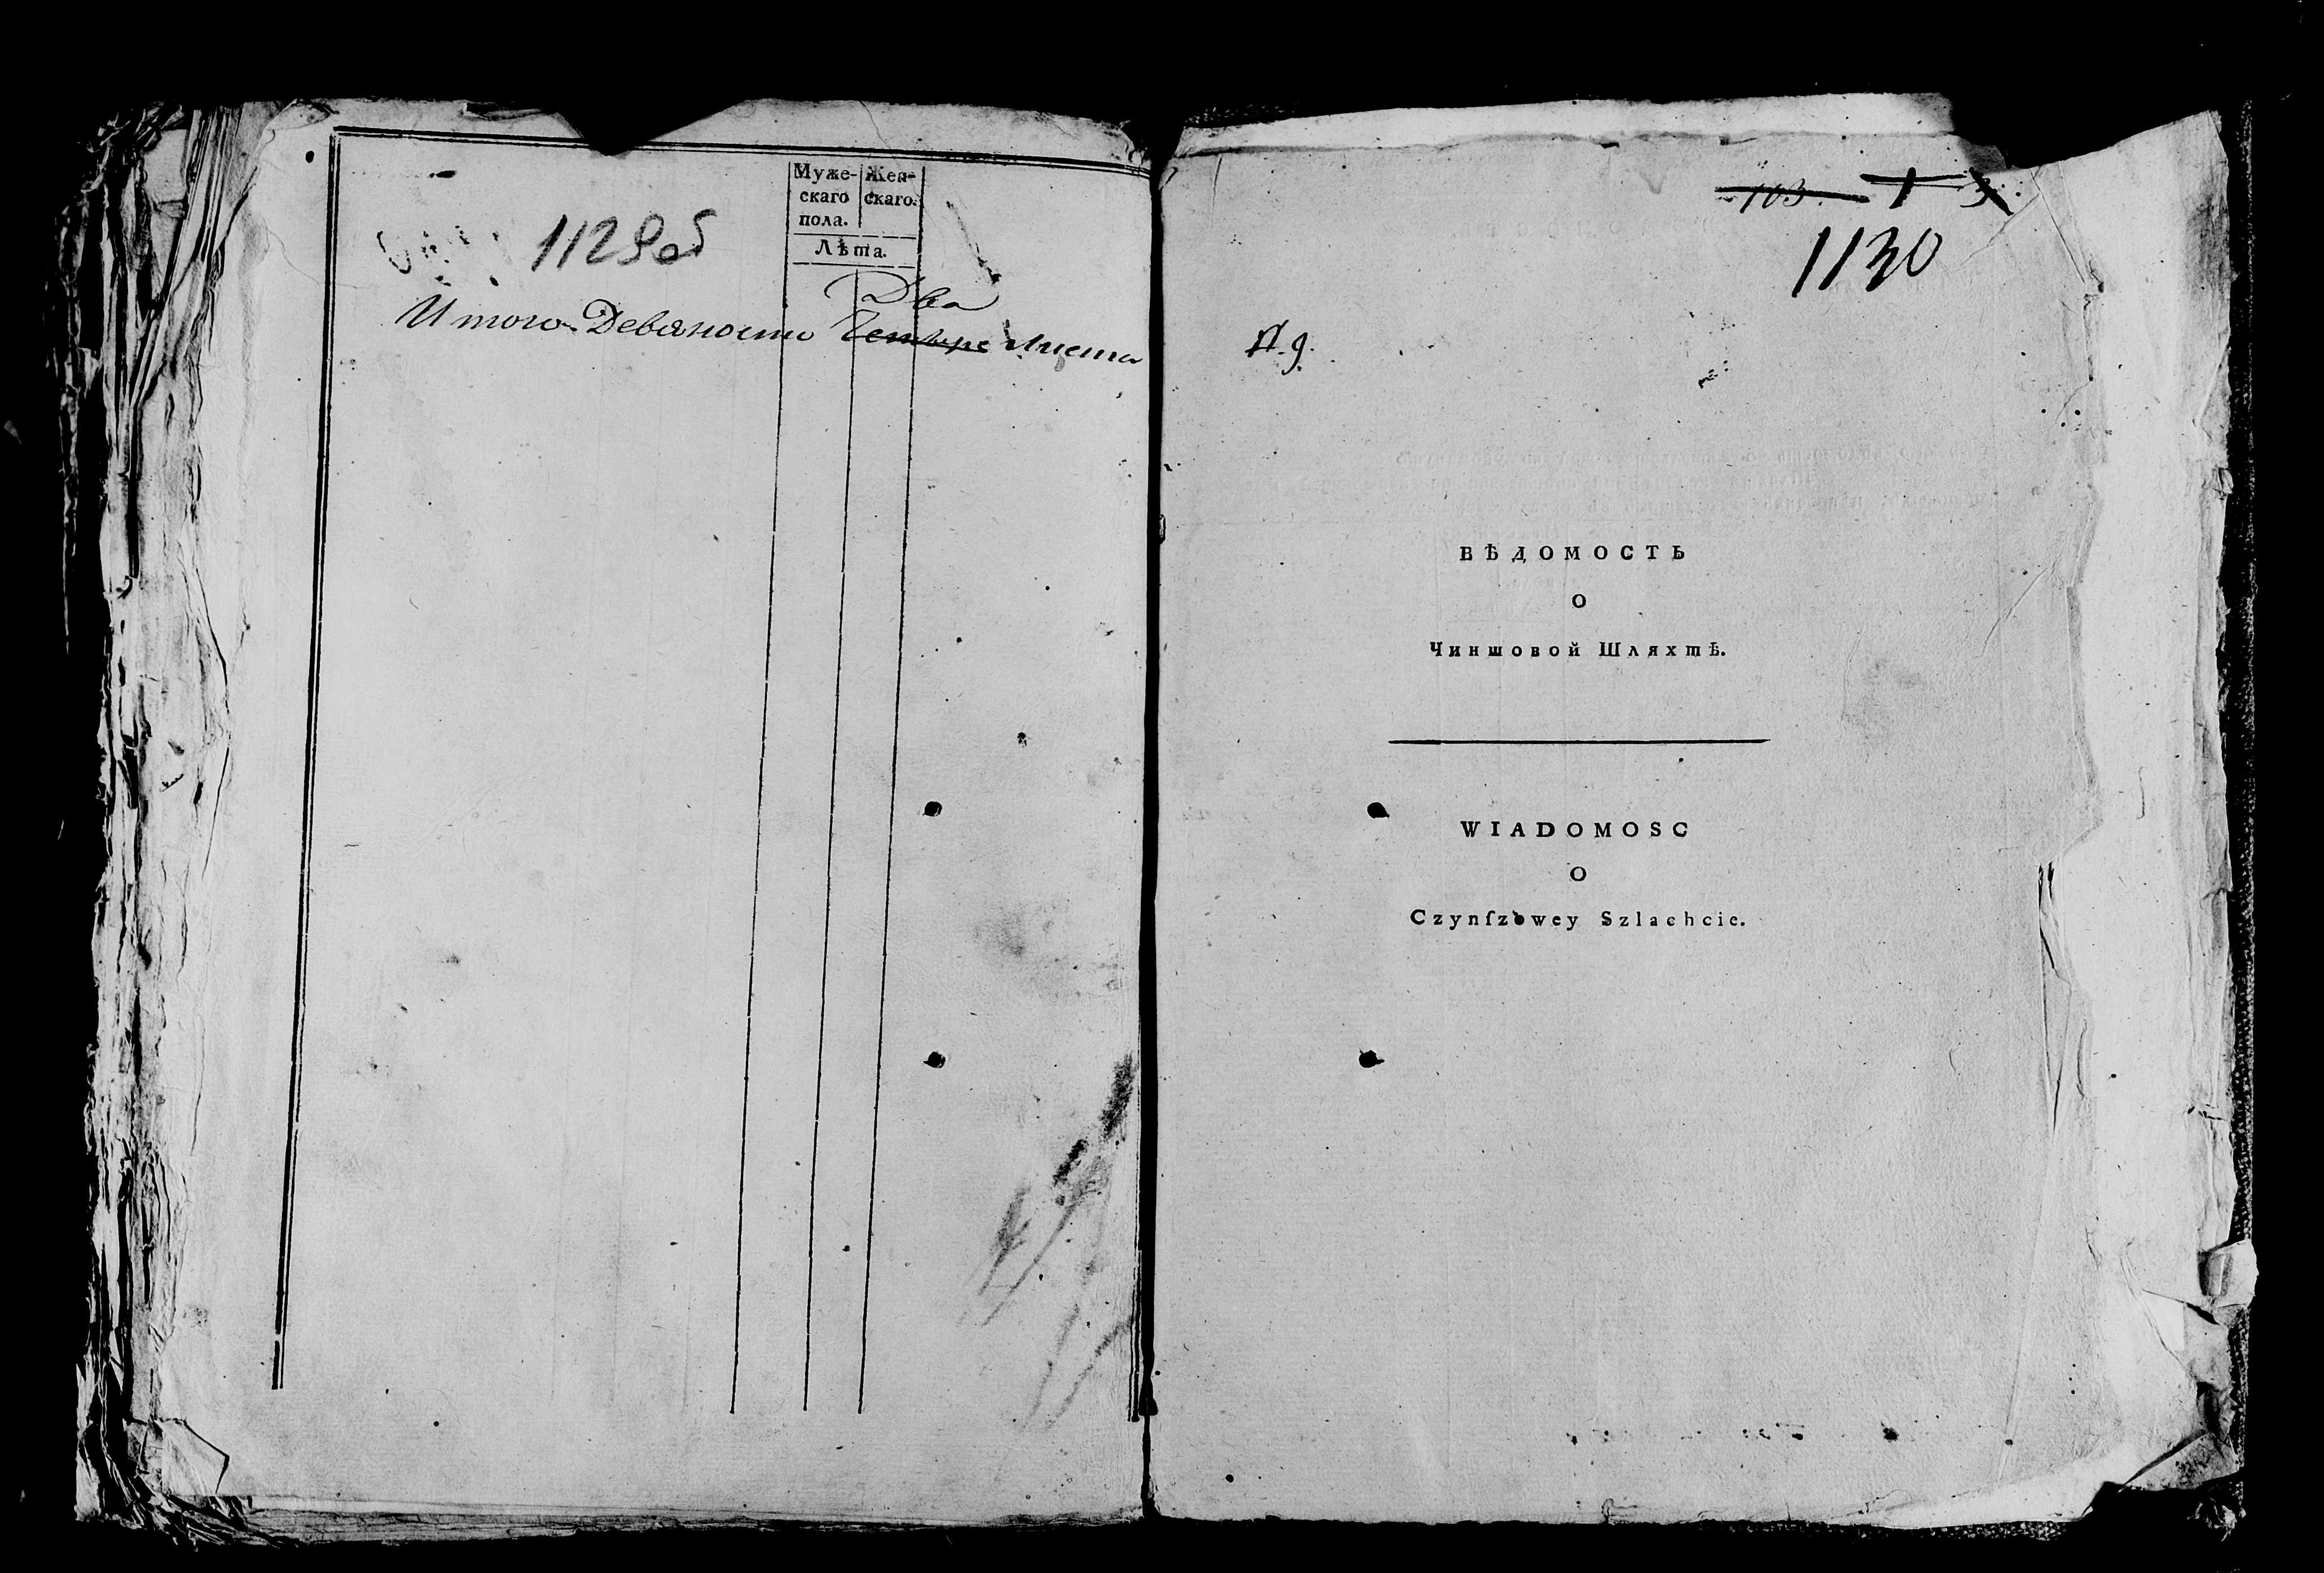 Муже- Жен-
скаго скаго.
пола.
Лѣта.
1129об
Два
Итого Девяносто Четыре листа
103 1 3
1130
ВѢДОМОСТЬ
О
Чиншовой Шляхтѣ.
WIADOMOSC
O
Czynſzowey Szlachcie.